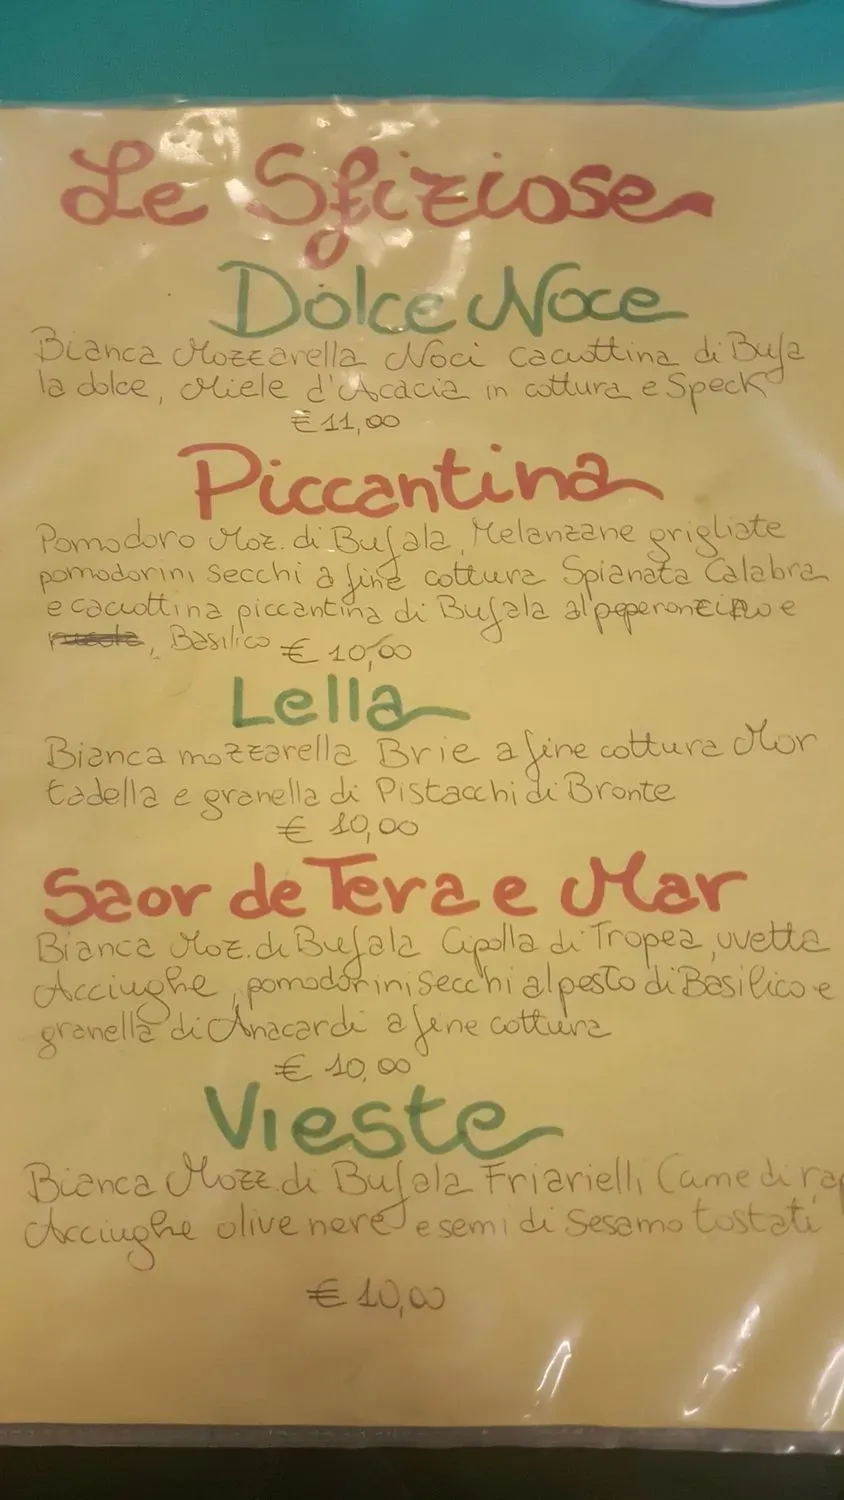 Le Sfiziose
Dolce Noce
Bianca Mozzarella Noci caciottina di Bufa
la dolce, Miele d'Acacia in cottura e Speck
€ 11,00
Piccantina
Pomodoro Moz. di Bufala, Melanzane grigliate
pomodorini secchi a fine cottura Spianata Calabra
e caciottina piccantina di Bufala al peperoncino e
rucola, Basilico € 10,00
Lella
Bianca mozzarella Brie a fine cottura Mor
tadella e granella di Pistacchi di Bronte
€ 10,00
Saor de Tera e Mar
Bianca Moz. di Bufala Cipolla di Tropea, uvetta
Acciughe, pomodorini secchi al pesto di Basilico e
granella di Anacardi a fine cottura
€ 10,00
Vieste
Bianca Mozz. di Bufala Friarielli, (ame di rap
Acciughe olive nere e semi di Sesamo tostati
€ 10,00